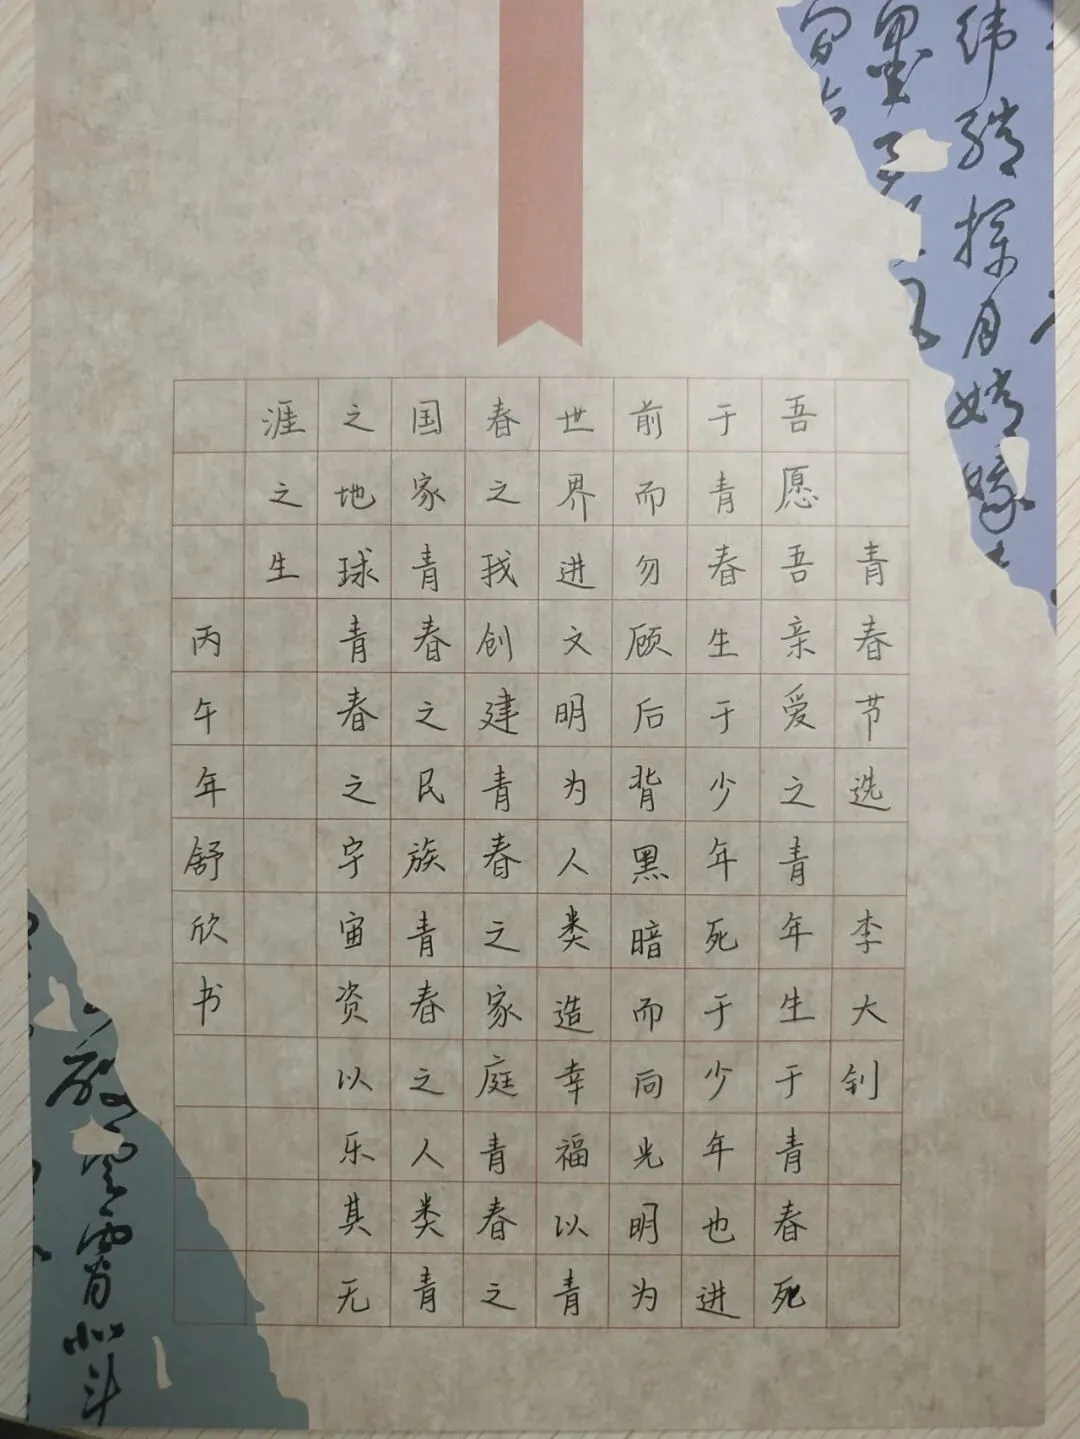 青春节选 李大钊
吾愿吾亲爱之青年生于青春死
于青春生于少年死于少年也进
前而勿顾后背黑暗而向光明为
世界进文明为人类造幸福以青
春之我创建青春之家庭青春之
国家青春之民族青春之人类青
之地球青春之宇宙资以乐其无
涯之生
丙午年舒欣书